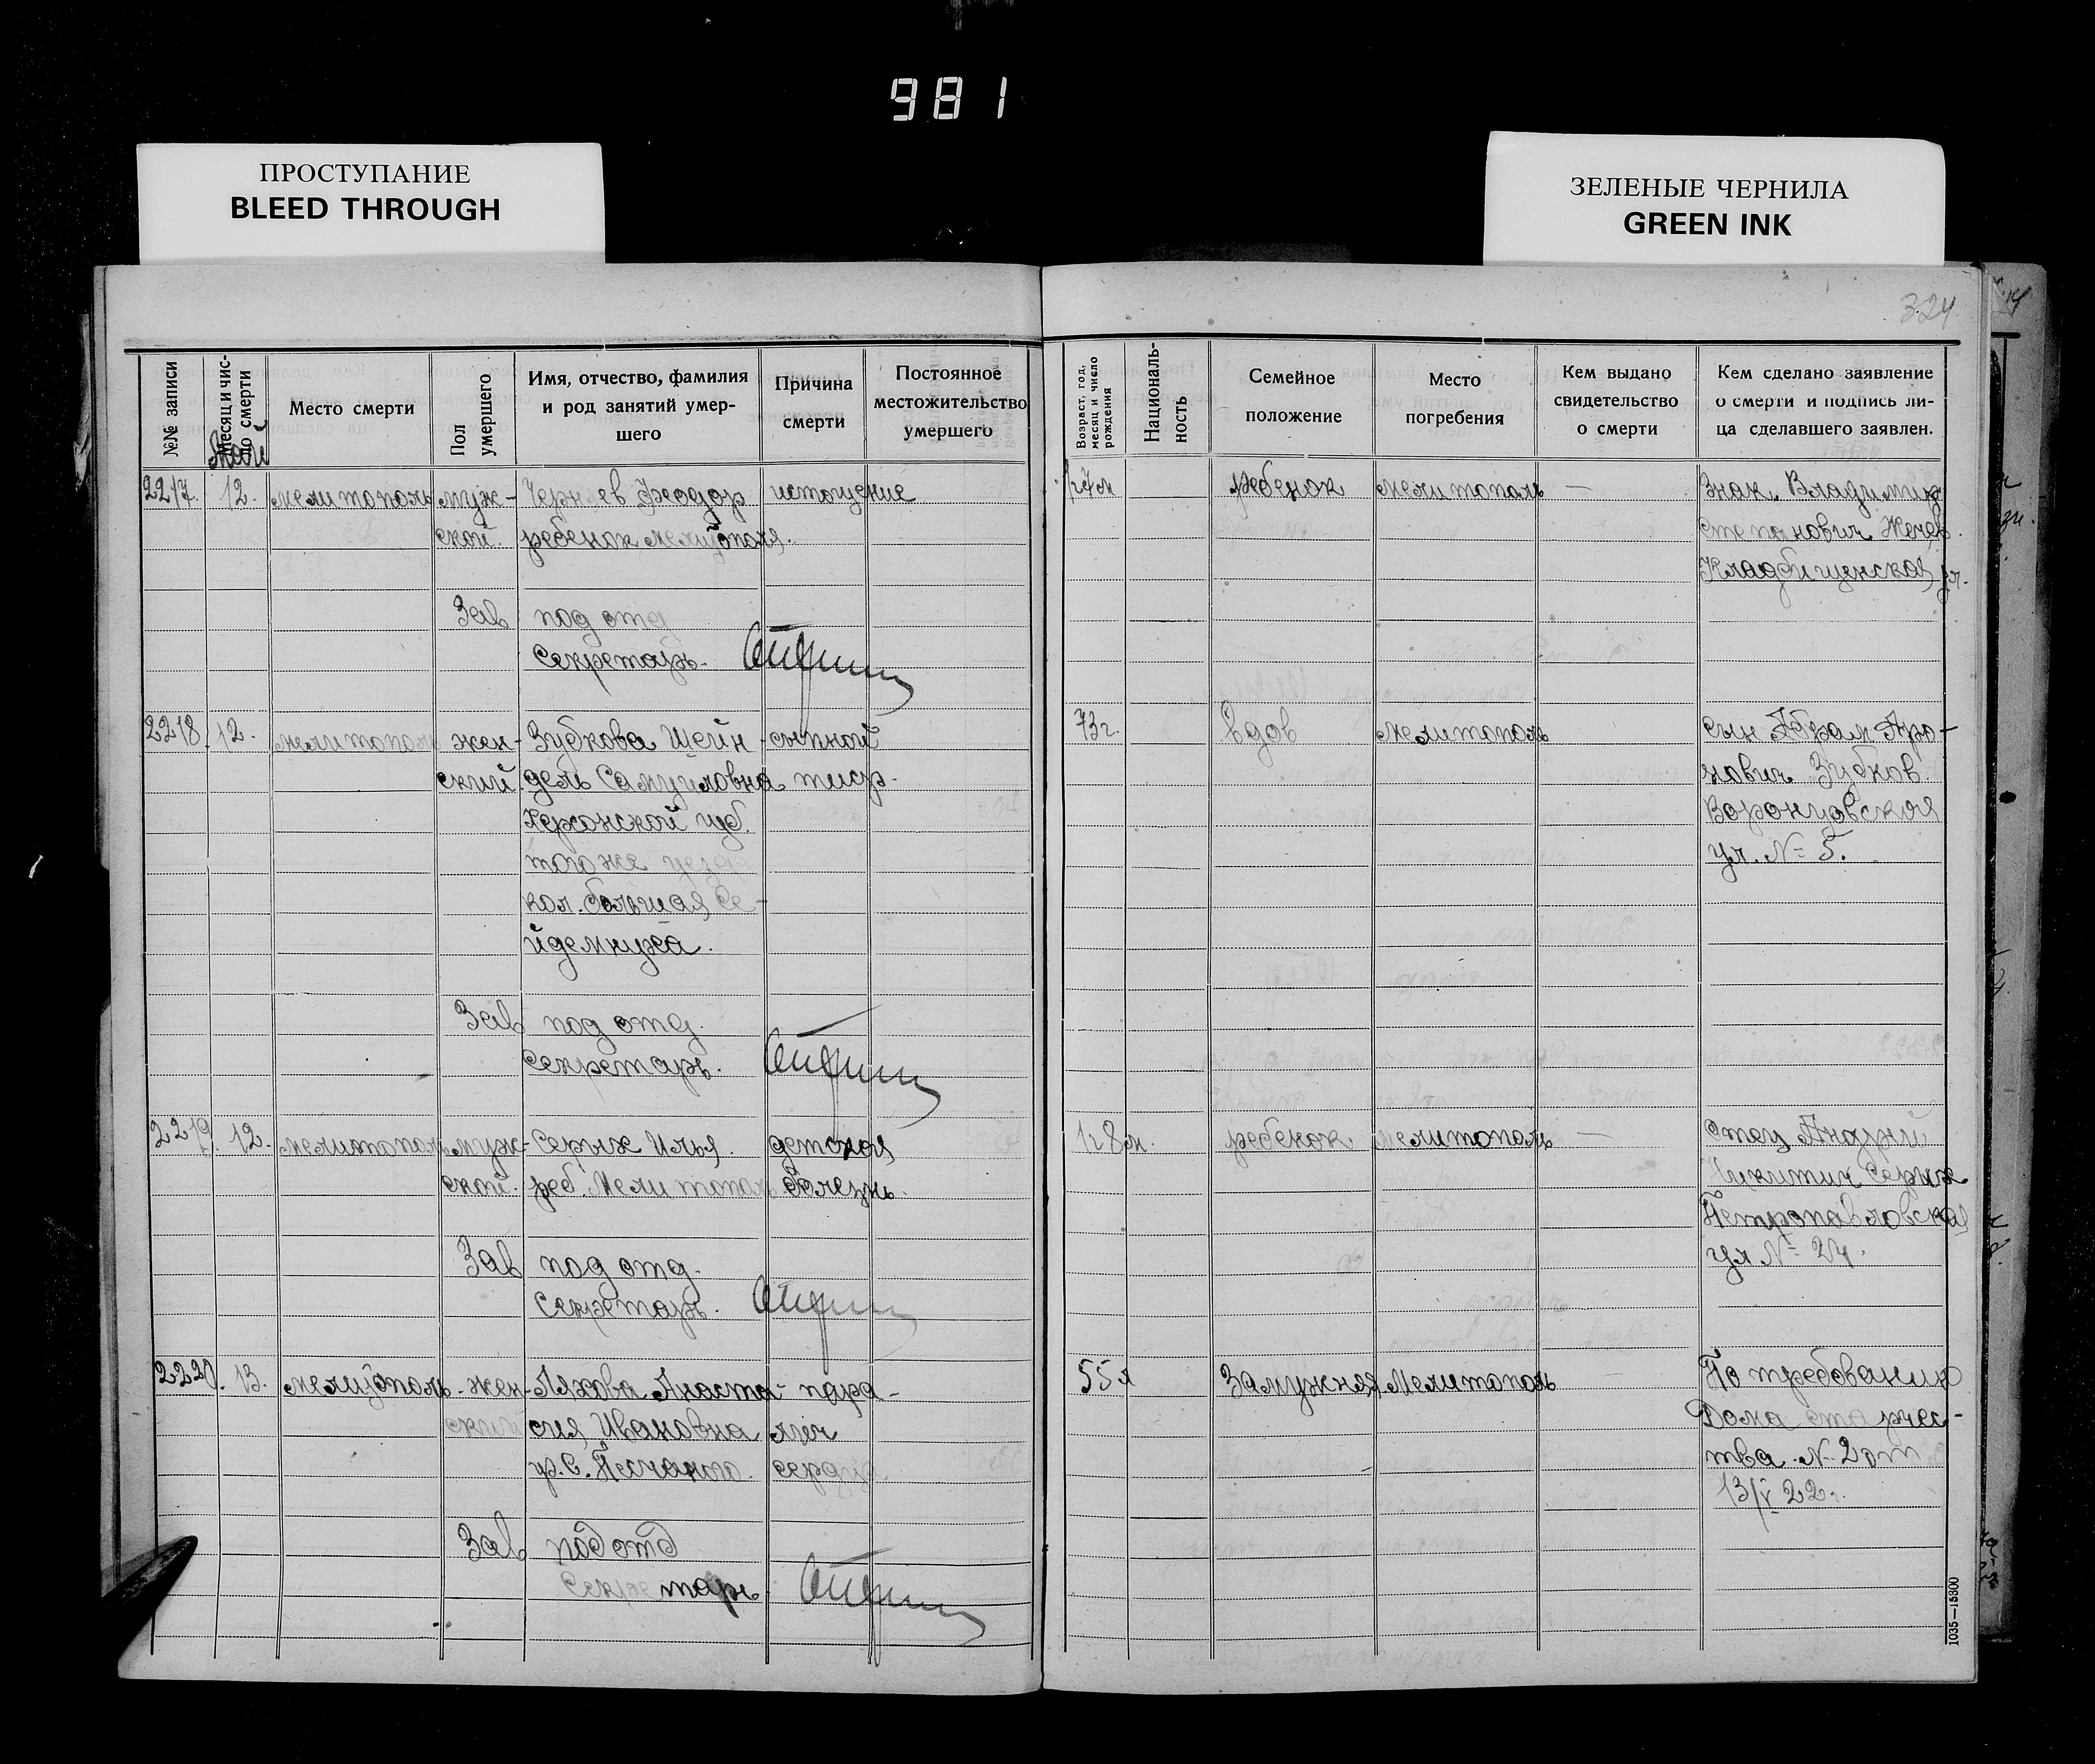 981
ПРОСТУПАНИЕ
BLEED THROUGH
ЗЕЛЕНЫЕ ЧЕРНИЛА
GREEN INK
324
№№ записи
Месяц и чис-
ло смерти
Место смерти
Пол
умершего
Имя, отчество, фамилия
и род занятий умер-
шего
Причина
смерти
Постоянное
местожительство
умершего
Возраст, год,
месяц и число
рождения
Националь-
ность
Семейное
положение
Место
погребения
Кем выдано
свидетельство
о смерти
Кем сделано заявление
о смерти и подпись ли-
ца сделавшего заявлен.
Май
2217. 12. мелитополь муж- Феодор истощение
ской. ребенок мелитополя.
Зав под отд
Секретарь.
ребенок мелитополь — Знак. Владимир
Степанович
Кладбищенская ул.
2218. 12. мелитополь жен- Зубкова Шейн- сыпной
ский дель Самуиловна тиф.
Херсонской губ.
того же уезда
кол. большая Се-
йдеминуха.
Зав под отд.
Секретарь.
73г. вдов мелитополь сын Абрам Аро-
нович Зубков
Воронцовская
ул. № 5.
2219. 12. мелитополь муж- Серых Илья. детская
ской. реб. Мелитополь болезнь.
Зав под отд.
Секретарь.
1г 8м. ребенок мелитополь — отец Андрей
Никитич Серых
Петропавловская
ул № 24.
2220. 13. мелитополь жен- Ляхова Анаста- пара-
ский сия Ивановна лич
гр. С. Песчаного сердца
Зав под отд
Секретарь.
55л Замужняя Мелитополь По требованию
Дома старчес-
тва № 2 от
13/V 22г.
1035—15800